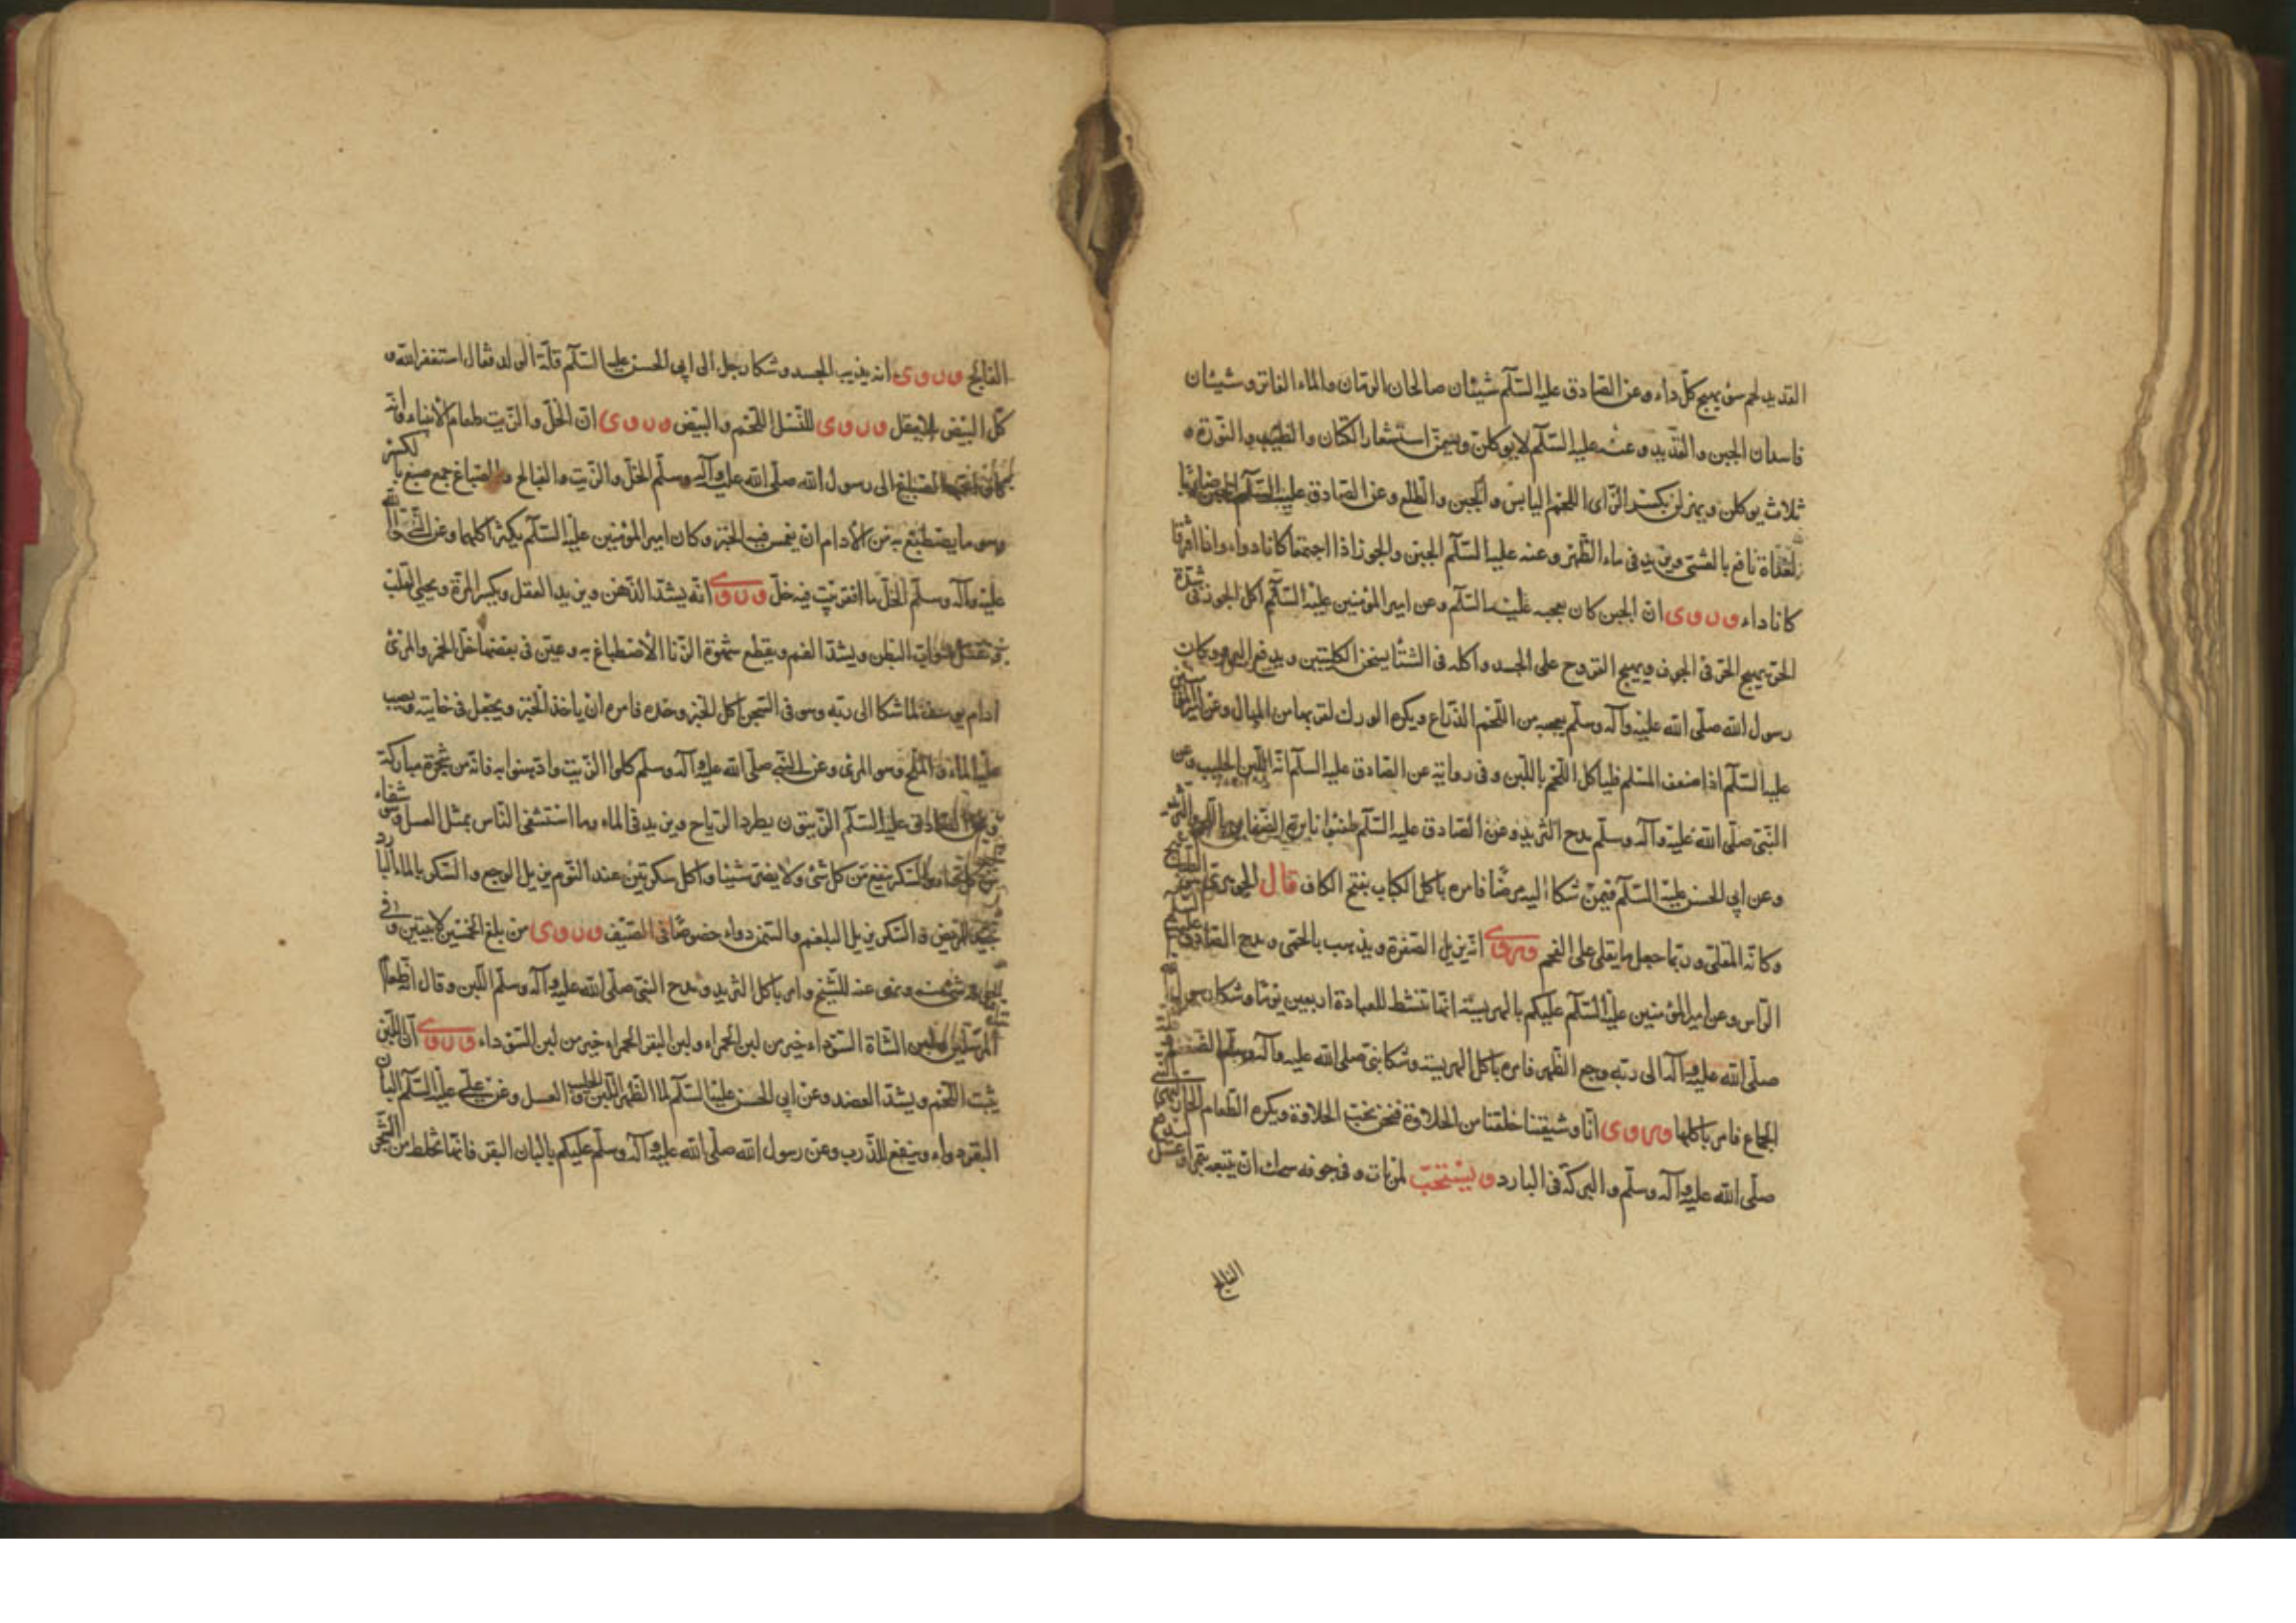 القديد لحم سوء يهيج كل داء وعن الصادق عليه السلم شيئان صالحان الرمان والماء الفاتر وشيئان
فاسدان الجبن والقديد وعنه عليه السلم لا يوكلن ويسمن استشعار الكتان والطيب والنورة و
ثلاث يوكلن ويهزلن بكسر الزاى اللحم اليابس والجبن والطلع وعن الصادق عليه السلم الجبن ضار
بالغداة نافع بالعشى ويزيد فى ماء الظهر وعنه عليه السلم الجبن والجوز اذا اجتمعا كانا دواء واذا افترقا
كانا داء وروى ان الجبن كان يعجبه عليه السلم وعن امير المؤمنين عليه السلم اكل الجوز فى شدة
الحر يهيج الحر فى الجوف ويهيج القروح على الجسد واكله فى الشتا يسخن الكليتين ويدفع البرد وكان
رسول الله صلى الله عليه وآله وسلم يعجبه من اللحم الذراع ويكره الورك لقربها من المبال وعن
عليه السلم اذا ضعف المسلم فلياكل اللحم باللبن وفى رواية عن الصادق عليه السلم انه اللبن الحليب وعن
النبى صلى الله عليه وآله وسلم مدح الثريد وعن الصادق عليه السلم
وعن ابى الحسن عليه السلم فيمن شكا اليه مرضا فامره باكل الكباب بفتح الكاف قال الجوهرى
وكانه المقلى وربما جعل ما يقلى على الفحم وروى انه يزيل الصفرة ويذهب بالحمى ومدح الصادق
الراس وعن امير المؤمنين عليه السلم عليكم بالهريسة انها تنشط للعبادة اربعين يوما وشكا رسول
صلى الله عليه وآله الى ربه وجع الظهر فامره باكل الهريسة وشكا نبى صلى الله عليه وآله وسلم الضعف
الجماع فامر باكلها وروى انا وشيعتنا خلقنا من الحلاوة فنحن نحب الحلاوة ويكره الطعام الحار
صلى الله عليه وآله وسلم والبركة فى البارد ويستحب لمن بات وفى جوفه سمك ان يتبعه بتمر او عسل
الفالج
الفالج وروى انه يذيب الجسد وشكا رجل الى ابى الحسن عليه السلم قلة الولد فقال استغفر الله و
كل البيض وروى للنسل اللحم والبيض وروى ان الخل والزيت طعام الانبياء وانه
كان احب الصباغ الى رسول الله صلى الله عليه وآله وسلم الخل والزيت والصباغ جمع صبغ بالكسر
وهو ما يصطبغ به من الادام ان يغمس فيه الخبز وكان امير المؤمنين عليه السلم يكثر اكلهما وعن النبى صلى الله
عليه وآله وسلم الخل ما افقر بيت فيه خل وروى انه يشد الذهن ويزيد العقل ويكسر المرة ويحيى القلب
ويقتل دواب البطن ويشد الفم ويقطع شهوة الزنا الاصطباغ به وعين فى بعضها خل الخمر والمرى
ادام يوسف لما شكا الى ربه وهو فى السجن اكل الخبز وحده فامره ان ياخذ الخبز ويجعل فى خابية ويصب
عليه الماء والملح وهو المرى وعن النبى صلى الله عليه وآله وسلم كلوا الزيت وادهنوا به فانه من شجرة مباركة
وعن الصادق عليه السلم الزيتون يطرد الرياح ويزيد فى الماء وما استشفى الناس بمثل العسل وهو شفاء
من كل داء والسكر ينفع من كل شئ ولا يضر شيئا واكل سكرتين عند النوم يزيل الوجع والسكر بالماء البارد
جيد للمريض والسكر يزيل البلغم والسمن دواء خصوصا فى الصيف وروى من بلغ الخمسين لا يبيتن وفى
جوفه شئ منه ونهى عنه للشيخ وامر باكل الثريد ومدح النبى صلى الله عليه وآله وسلم اللبن وقال انه طعام
المرسلين ولبن الشاة السوداء خير من لبن الحمراء ولبن البقر الحمراء خير من لبن السوداء وروى ان اللبن
ينبت اللحم ويشد العضد وعن ابى الحسن عليه السلم لماء الظهر اللبن الحليب والعسل وعن على عليه السلم البان
البقر دواء وينفع للذرب وعن رسول الله صلى الله عليه وآله وسلم عليكم بالبان البقر فانها تخلط من الشجر